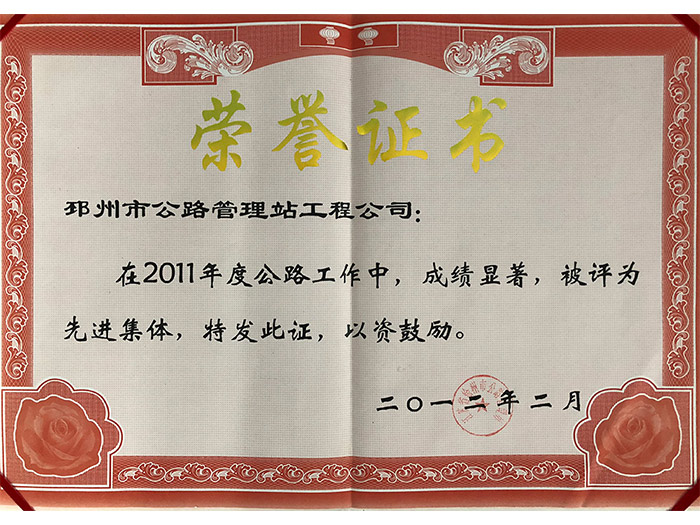 荣誉证书
邳州市公路管理站工程公司：
在2011年度公路工作中，成绩显著，被评为
先进集体，特发此证，以资鼓励。
二〇一二年二月